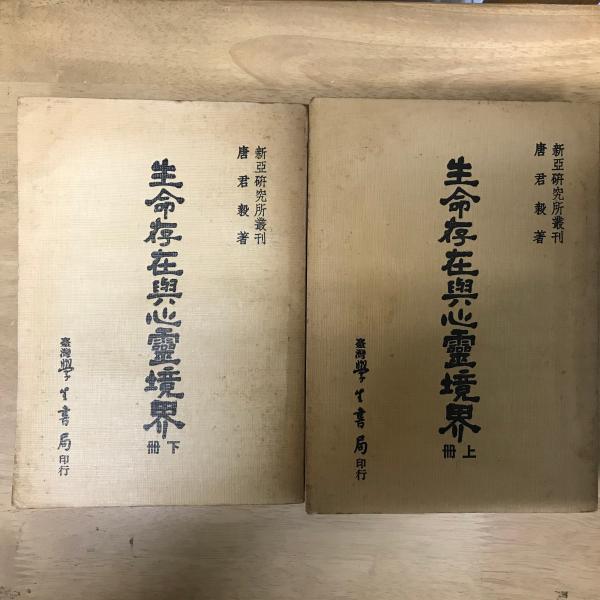 新亞研究所叢刊
唐君毅著
生命存在與心靈境界
上冊
臺灣學生書局印行
新亞研究所叢刊
唐君毅著
生命存在與心靈境界
下冊
臺灣學生書局印行